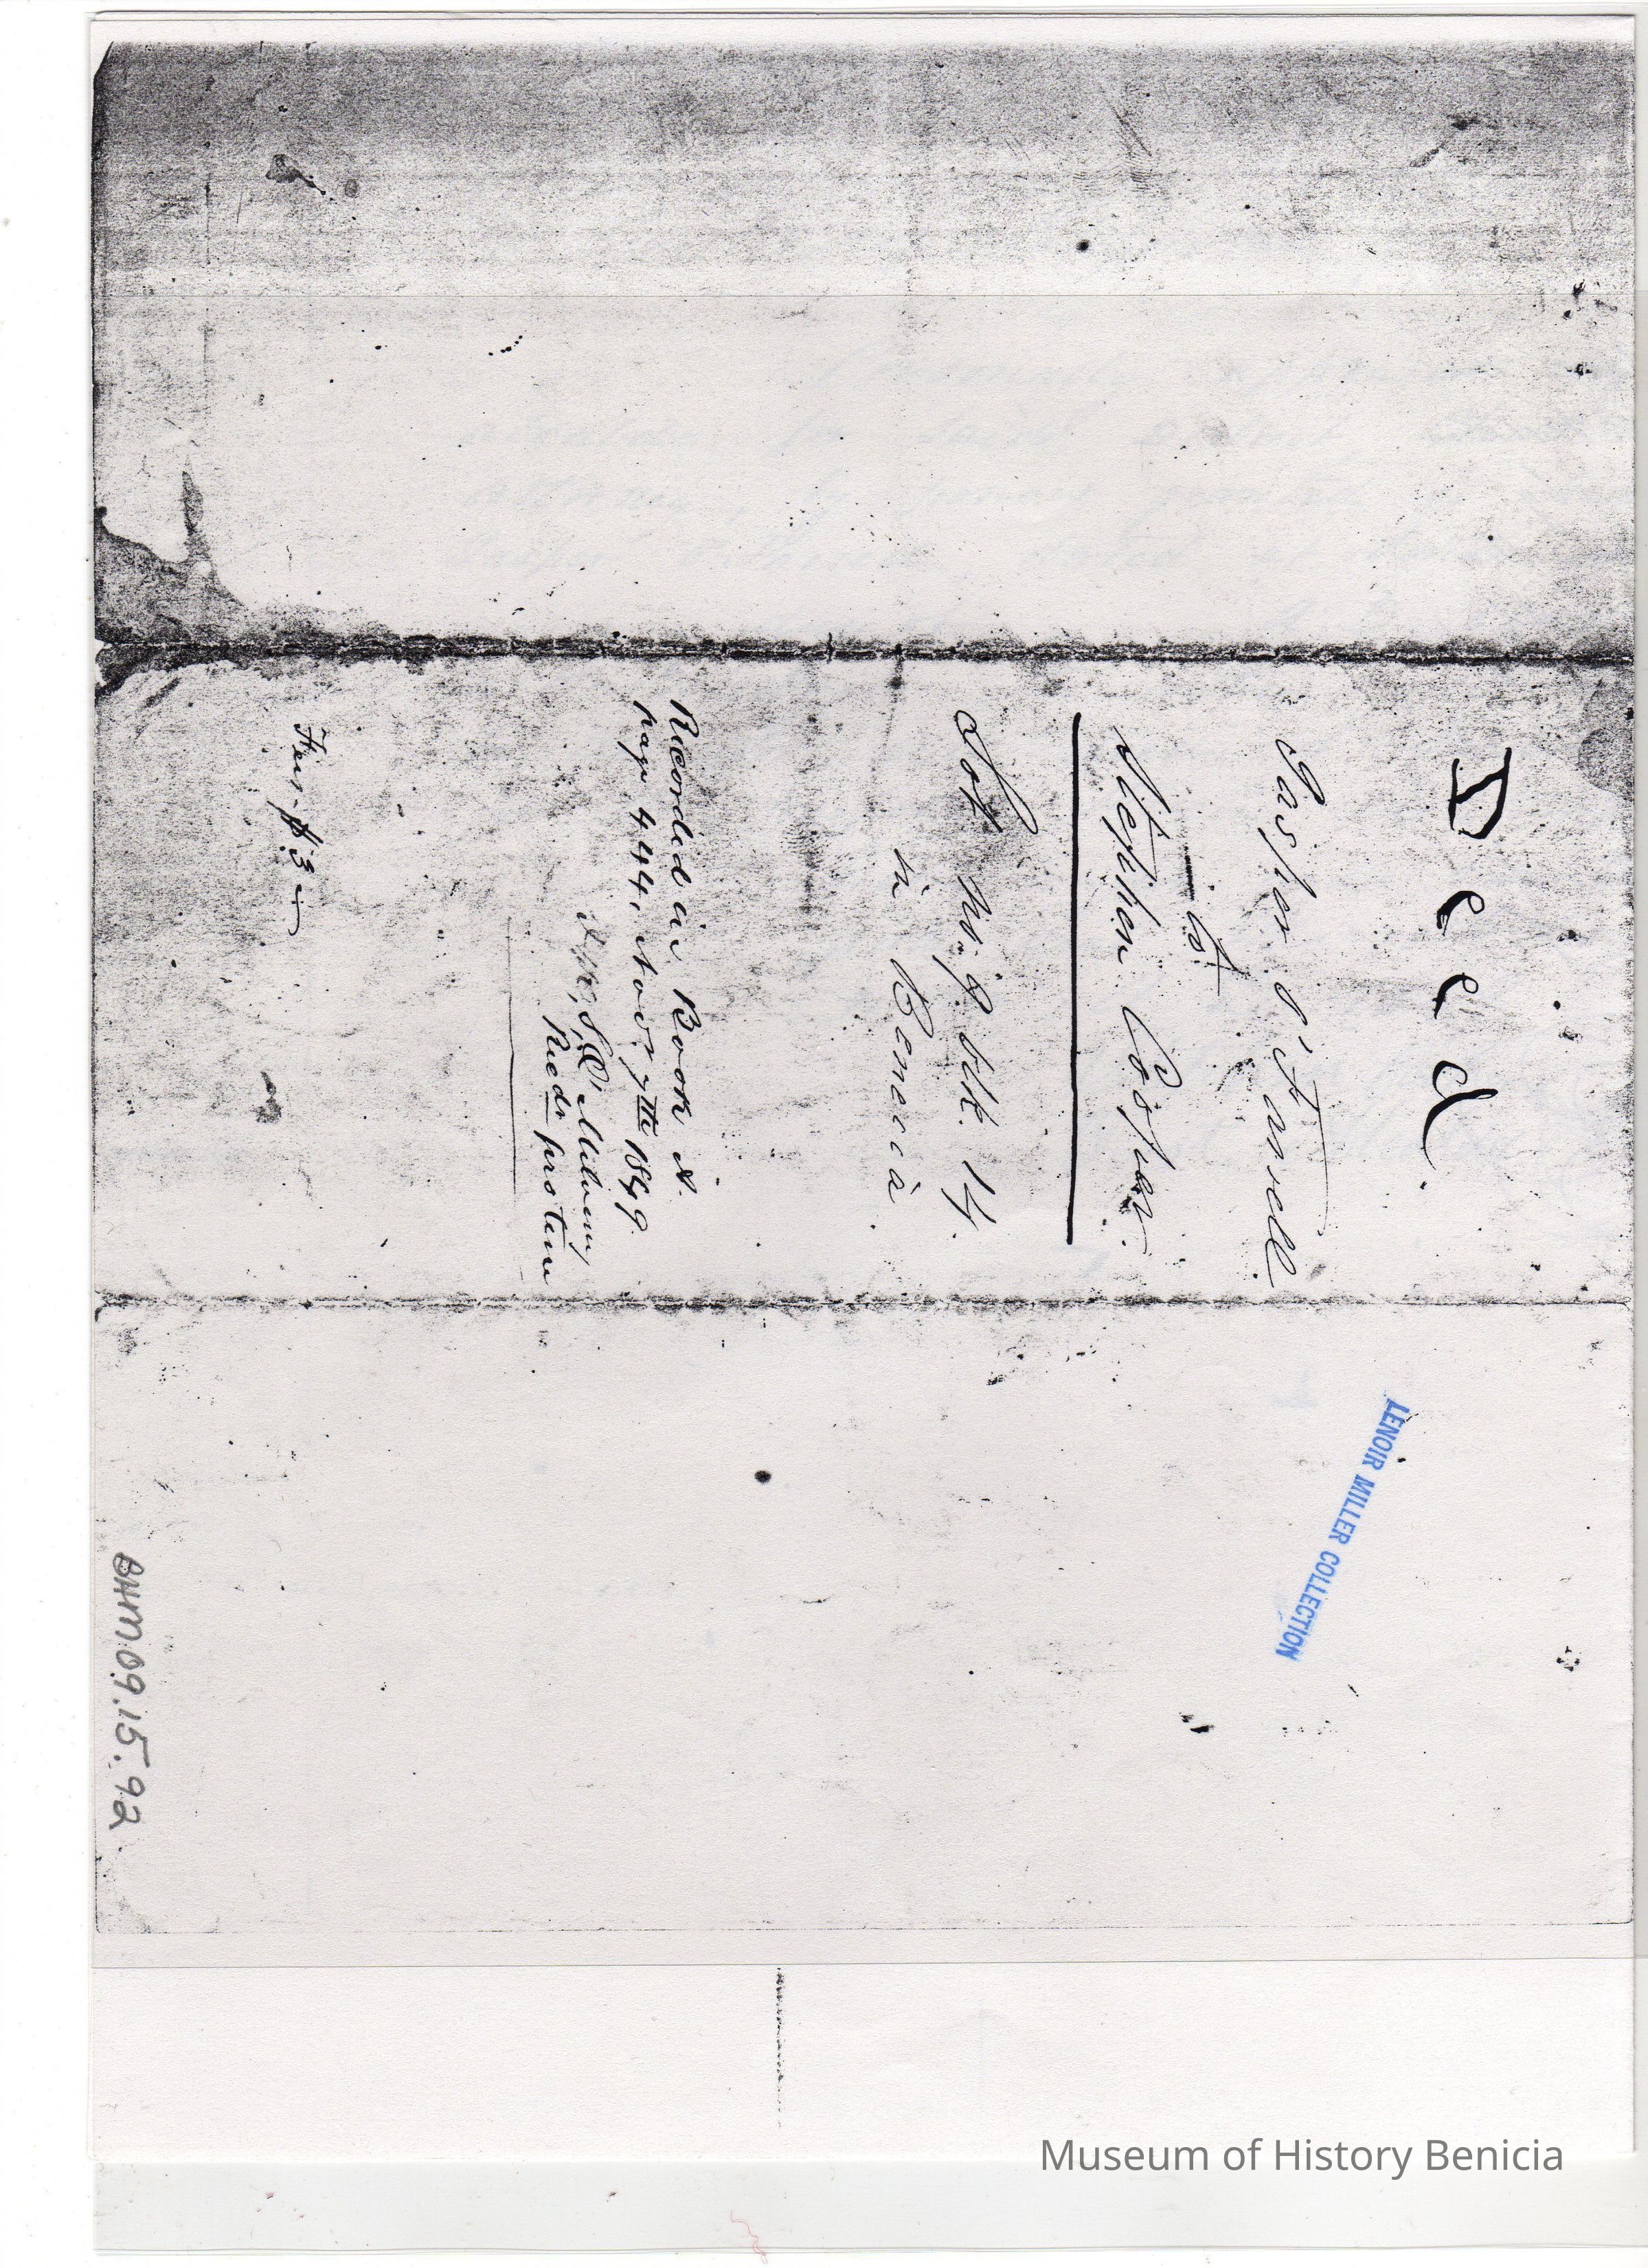 Deed.
Jasper O'Farrell
to
Stephen Cooper.
Lot No. 9 blk. 14.
in Benecia.
Recorded in Book A.
page 444, Nov 7th 1849.
Recdr pro tem
Fees $3
LENOIR MILLER COLLECTION
BHM09.15.92
Museum of History Benicia